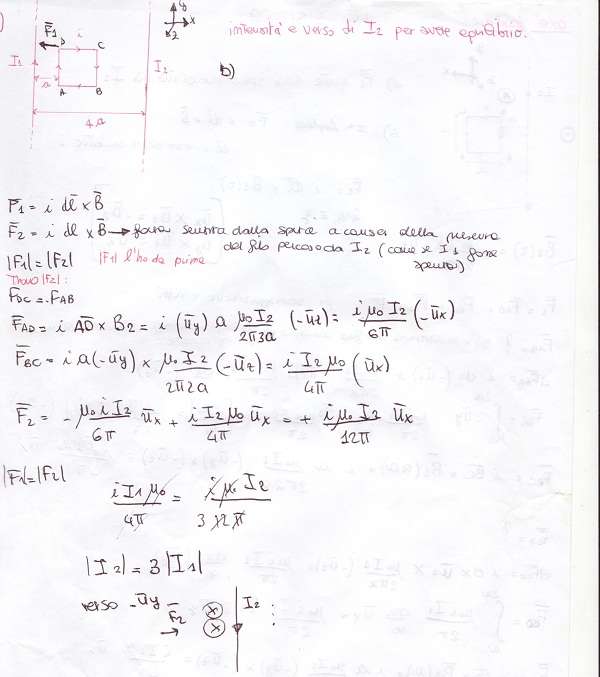 intensità e verso di I2 per avere equilibrio.
b)
y
x
z
F̄1
i
D
C
I1
a
A
B
I2
4a
F̄1 = i dl̄ x B̄
F̄2 = i dl̄ x B̄ → forza sentita dalla spira a causa della presenza
del filo percorso da I2 (come se I1 fosse
spento!)
|F1| = |F2| |F1| l'ho da prima
Trovo |F2|:
F̄DC = -F̄AB
F̄AD = i AD̄ x B2 = i (ūy) a μ0 I2 / 2π3a (-ūz) = i μ0 I2 / 6π (-ūx)
F̄BC = i a (-ūy) x μ0 I2 / 2π2a (-ūz) = i I2 μ0 / 4π (ūx)
F̄2 = - μ0 i I2 / 6π ūx + i I2 μ0 / 4π ūx = + i μ0 I2 / 12π ūx
|F̄1| = |F2|
i I1 μ0 / 4π = i μ0 I2 / 3 12π
|I2| = 3 |I1|
verso -ūy
F̄2
I2